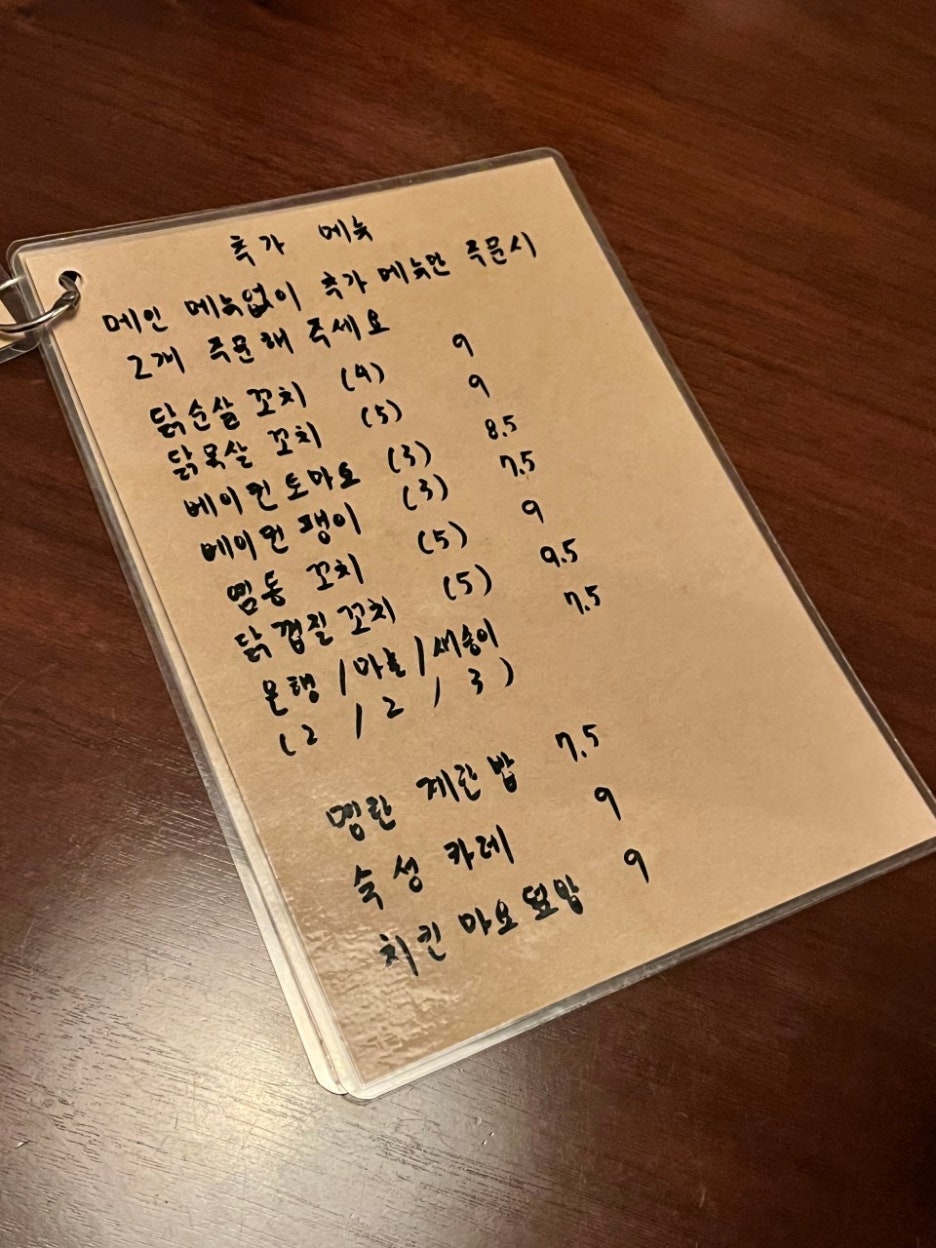 추가 메뉴
메인 메뉴없이 추가 메뉴만 주문시
2개 주문해 주세요
닭순살 꼬치 (4) 9
닭목살 꼬치 (5) 9
베이컨토마토 (3) 8.5
베이컨팽이 (3) 7.5
염통 꼬치 (5) 9
닭껍질꼬치 (5) 9.5
은행 / 마늘 / 새송이 7.5
(2 / 2 / 3)
명란 계란밥 7.5
숙성 카레 9
치킨마요덮밥 9